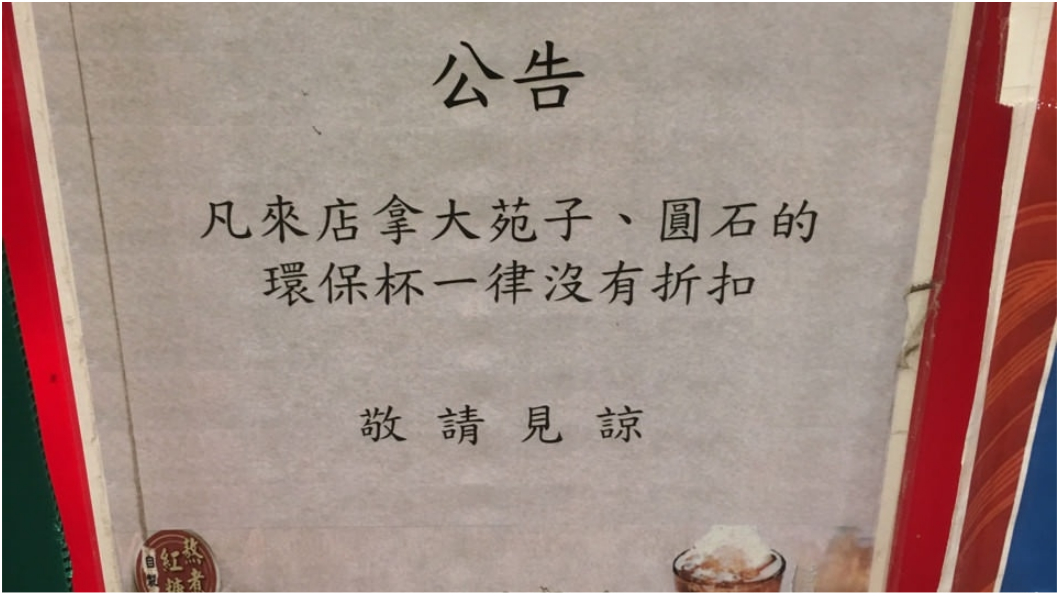 公告
凡來店拿大苑子、圓石的
環保杯一律沒有折扣
敬請見諒
自製
紅糖
熬煮